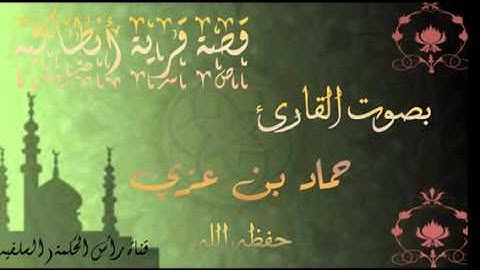 قصة قرية أنطاكية
بصوت القارئ
حماد بن عزي
حفظه الله
قناة رأس الحكمة السلفية